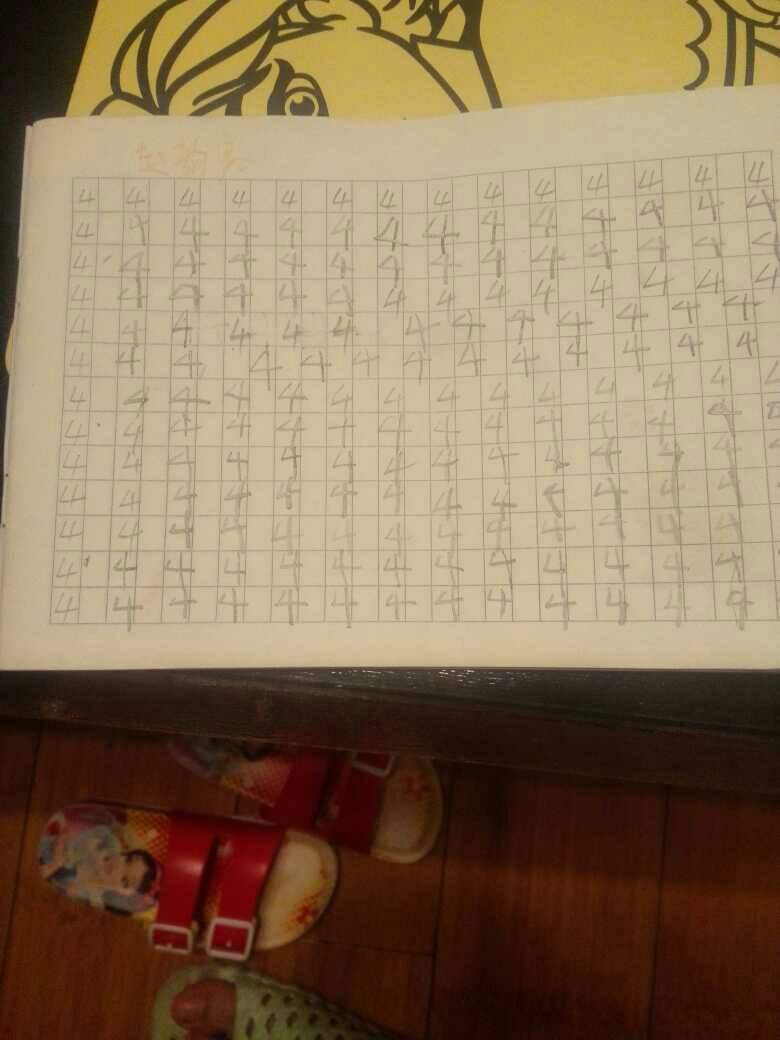 4 4 4 4 4 4 4 4 4 4 4 4 4 4
4 4 4 4 4 4 4 4 4 4 4 4 4 4
4 4 4 4 4 4 4 4 4 4 4 4 4 4
4 4 4 4 4 4 4 4 4 4 4 4 4 4
4 4 4 4 4 4 4 4 4 4 4 4 4
4 4 4 4 4 4 4 4 4 4 4 4 4
4 4 4 4 4 4 4 4 4 4 4 4 4
4 4 4 4 4 4 4 4 4 4 4 4 4
4 4 4 4 4 4 4 4 4 4 4 4 4
4 4 4 4 4 4 4 4 4 4 4 4 4
4 4 4 4 4 4 4 4 4 4 4 4 4
4 4 4 4 4 4 4 4 4 4 4 4 4
4 4 4 4 4 4 4 4 4 4 4 4 4